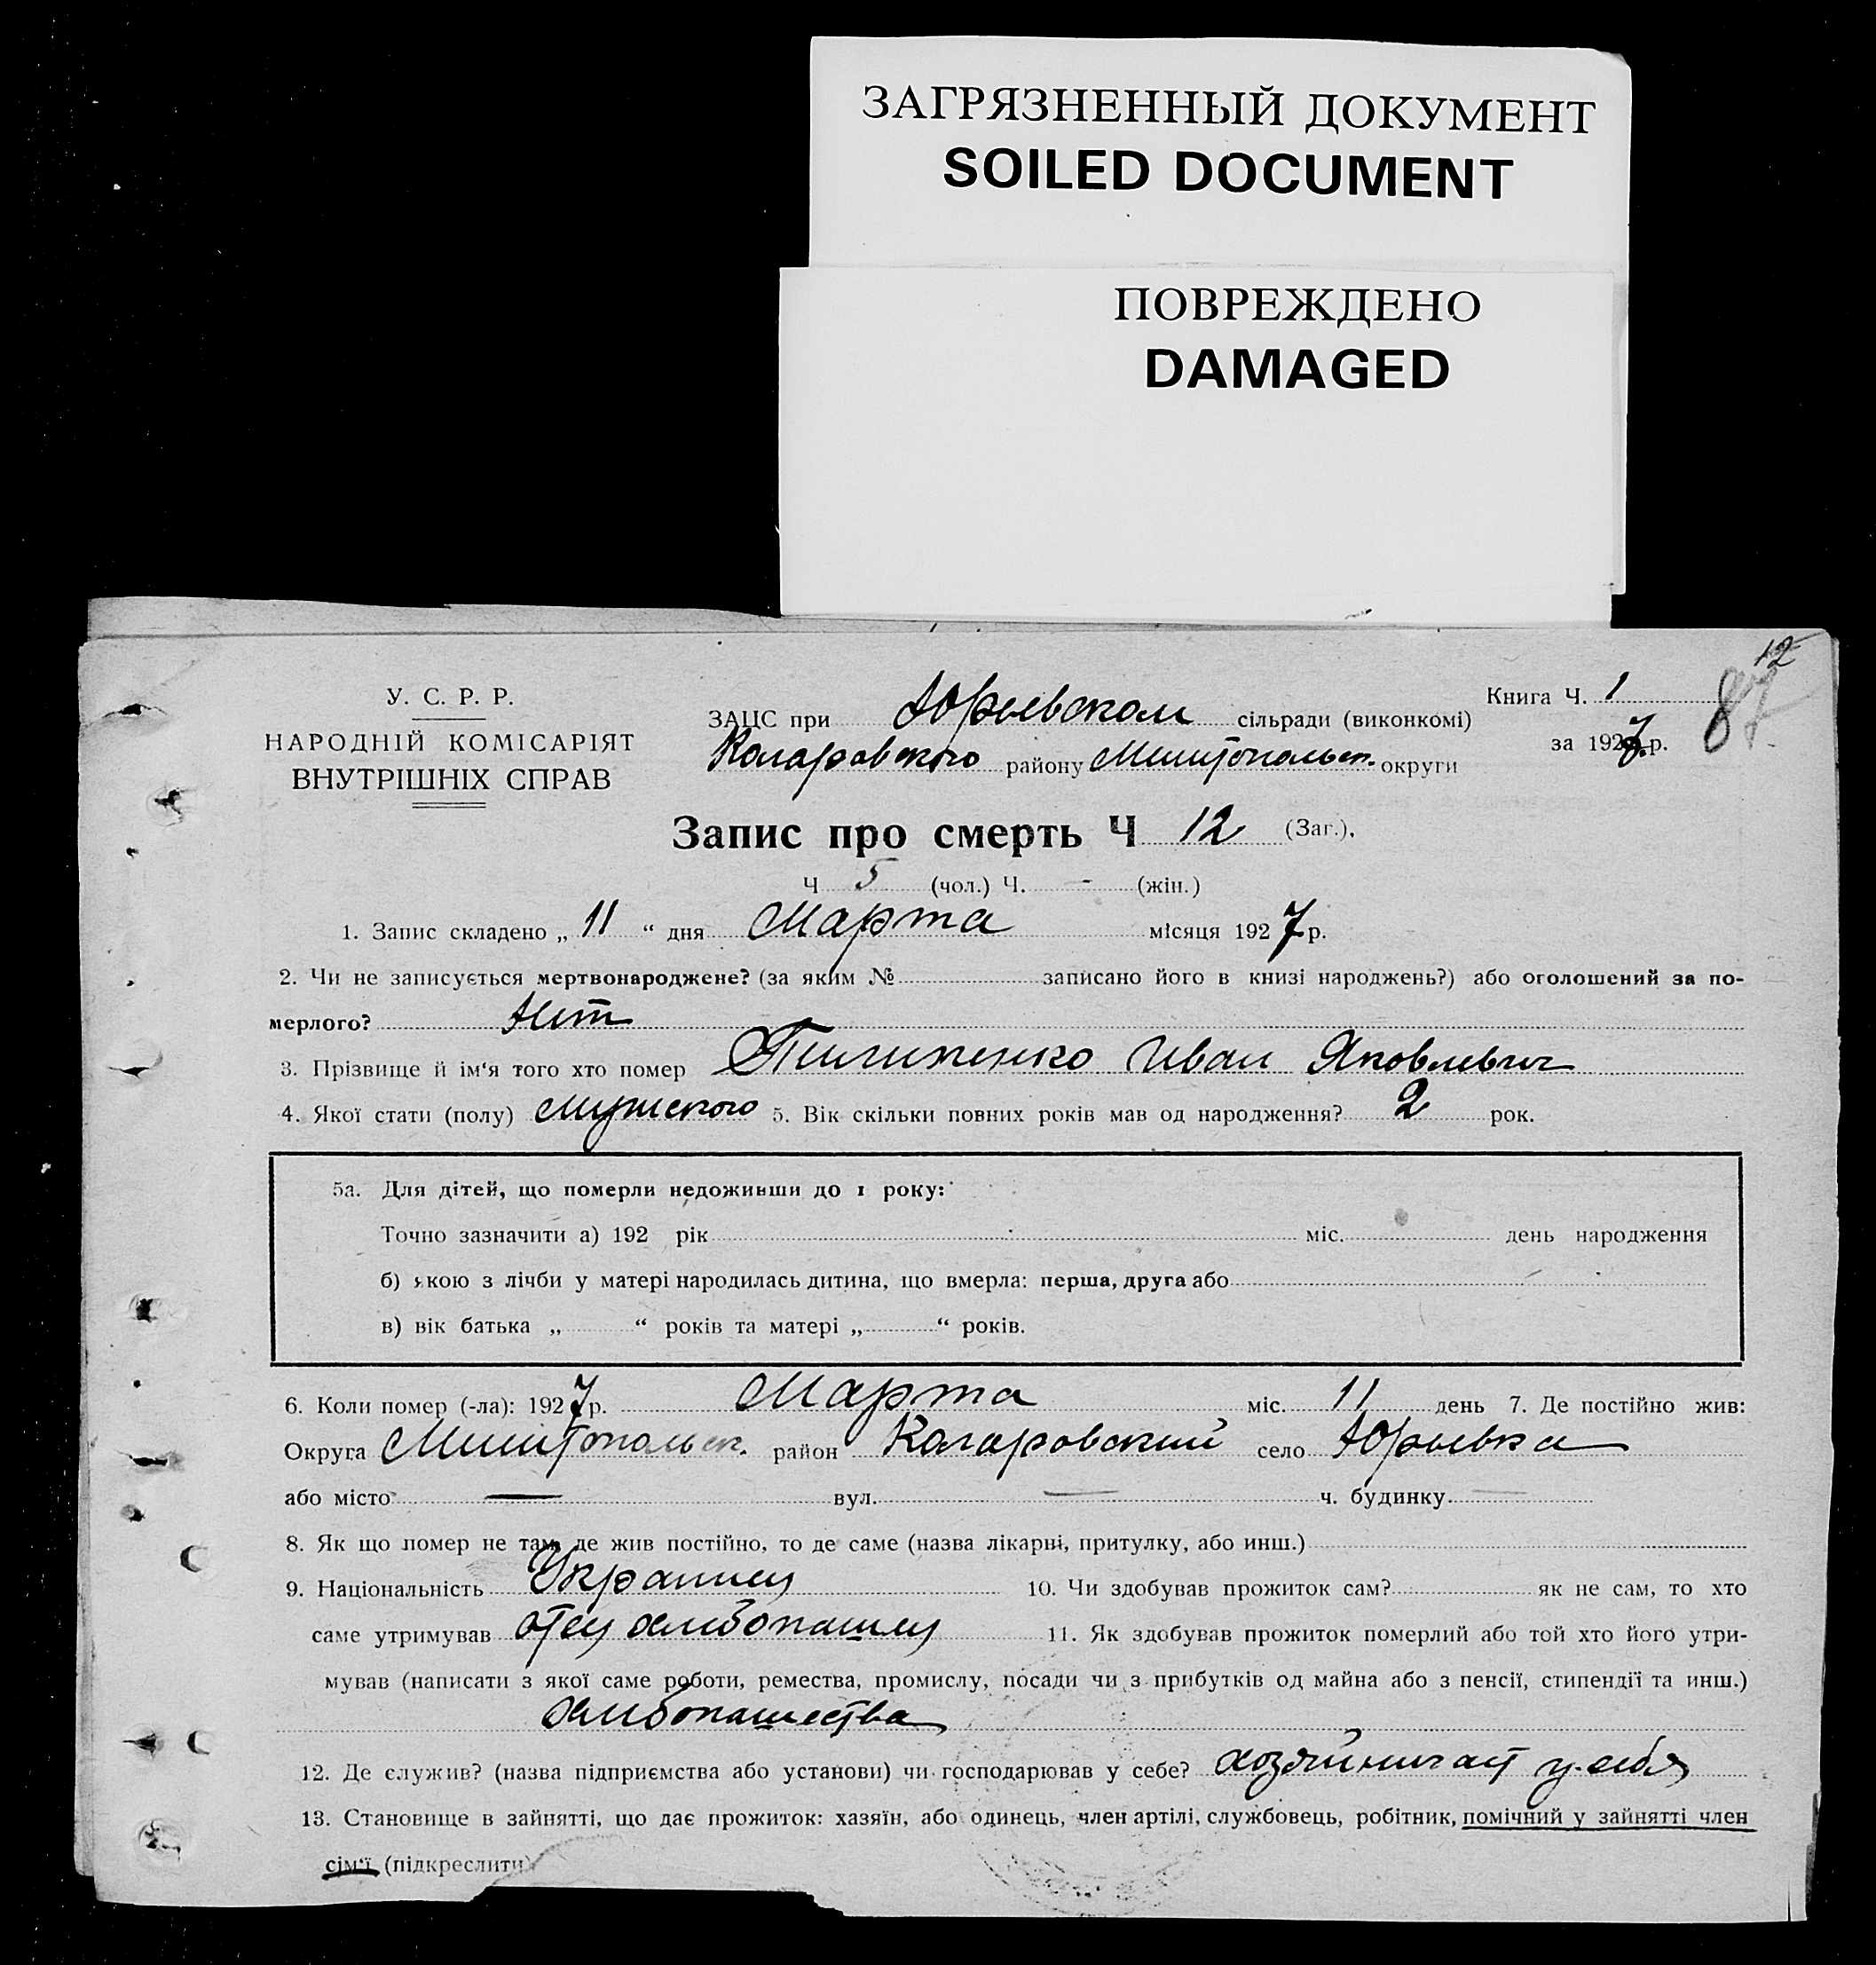 ЗАГРЯЗНЕННЫЙ ДОКУМЕНТ
SOILED DOCUMENT
ПОВРЕЖДЕНО
DAMAGED
12
87
У. С. Р. Р.
НАРОДНІЙ КОМІСАРІЯТ
ВНУТРІШНІХ СПРАВ
Книга Ч. 1
за 1927 р.
ЗАЦС при Юрьевском сільради (виконкомі)
Коларовского району Милитопольск. округи
Запис про смерть Ч 12 (Заг.),
Ч 5 (чол.) Ч. - (жін.)
1. Запис складено „ 11 “ дня Марта місяця 1927 р.
2. Чи не записується мертвонароджене? (за яким № записано його в книзі народжень?) або оголошений за по-
мерлого? Нет
3. Прізвище й ім‘я того хто помер Пилипенко Иван Яковлевич
4. Якої стати (полу) мужского 5. Вік скільки повних років мав од народження? 2 рок.
5а. Для дітей, що померли недоживши до 1 року:
Точно зазначити а) 192 рік міс. день народження
б) якою з лічби у матері народилась дитина, що вмерла: перша, друга або
в) вік батька „ “ років та матері „ “ років.
6. Коли помер (-ла): 1927 р. Марта міс. 11 день 7. Де постійно жив:
Округа Милитопольск. район Коларовский село Юрьевка
або місто — вул. — ч. будинку —
8. Як що помер не там, де жив постійно, то де саме (назва лікарні, притулку, або инш.)
9. Національність Украинец 10. Чи здобував прожиток сам? як не сам, то хто
саме утримував отец хлибопашец 11. Як здобував прожиток померлий або той хто його утри-
мував (написати з якої саме роботи, ремества, промислу, посади чи з прибутків од майна або з пенсії, стипендії та инш.)
хлибопашества
12. Де служив? (назва підприємства або установи) чи господарював у себе? хозяйничает у себя
13. Становище в зайнятті, що дає прожиток: хазяїн, або одинець, член артілі, службовець, робітник, помічний у зайнятті член
сім‘ї (підкреслити)